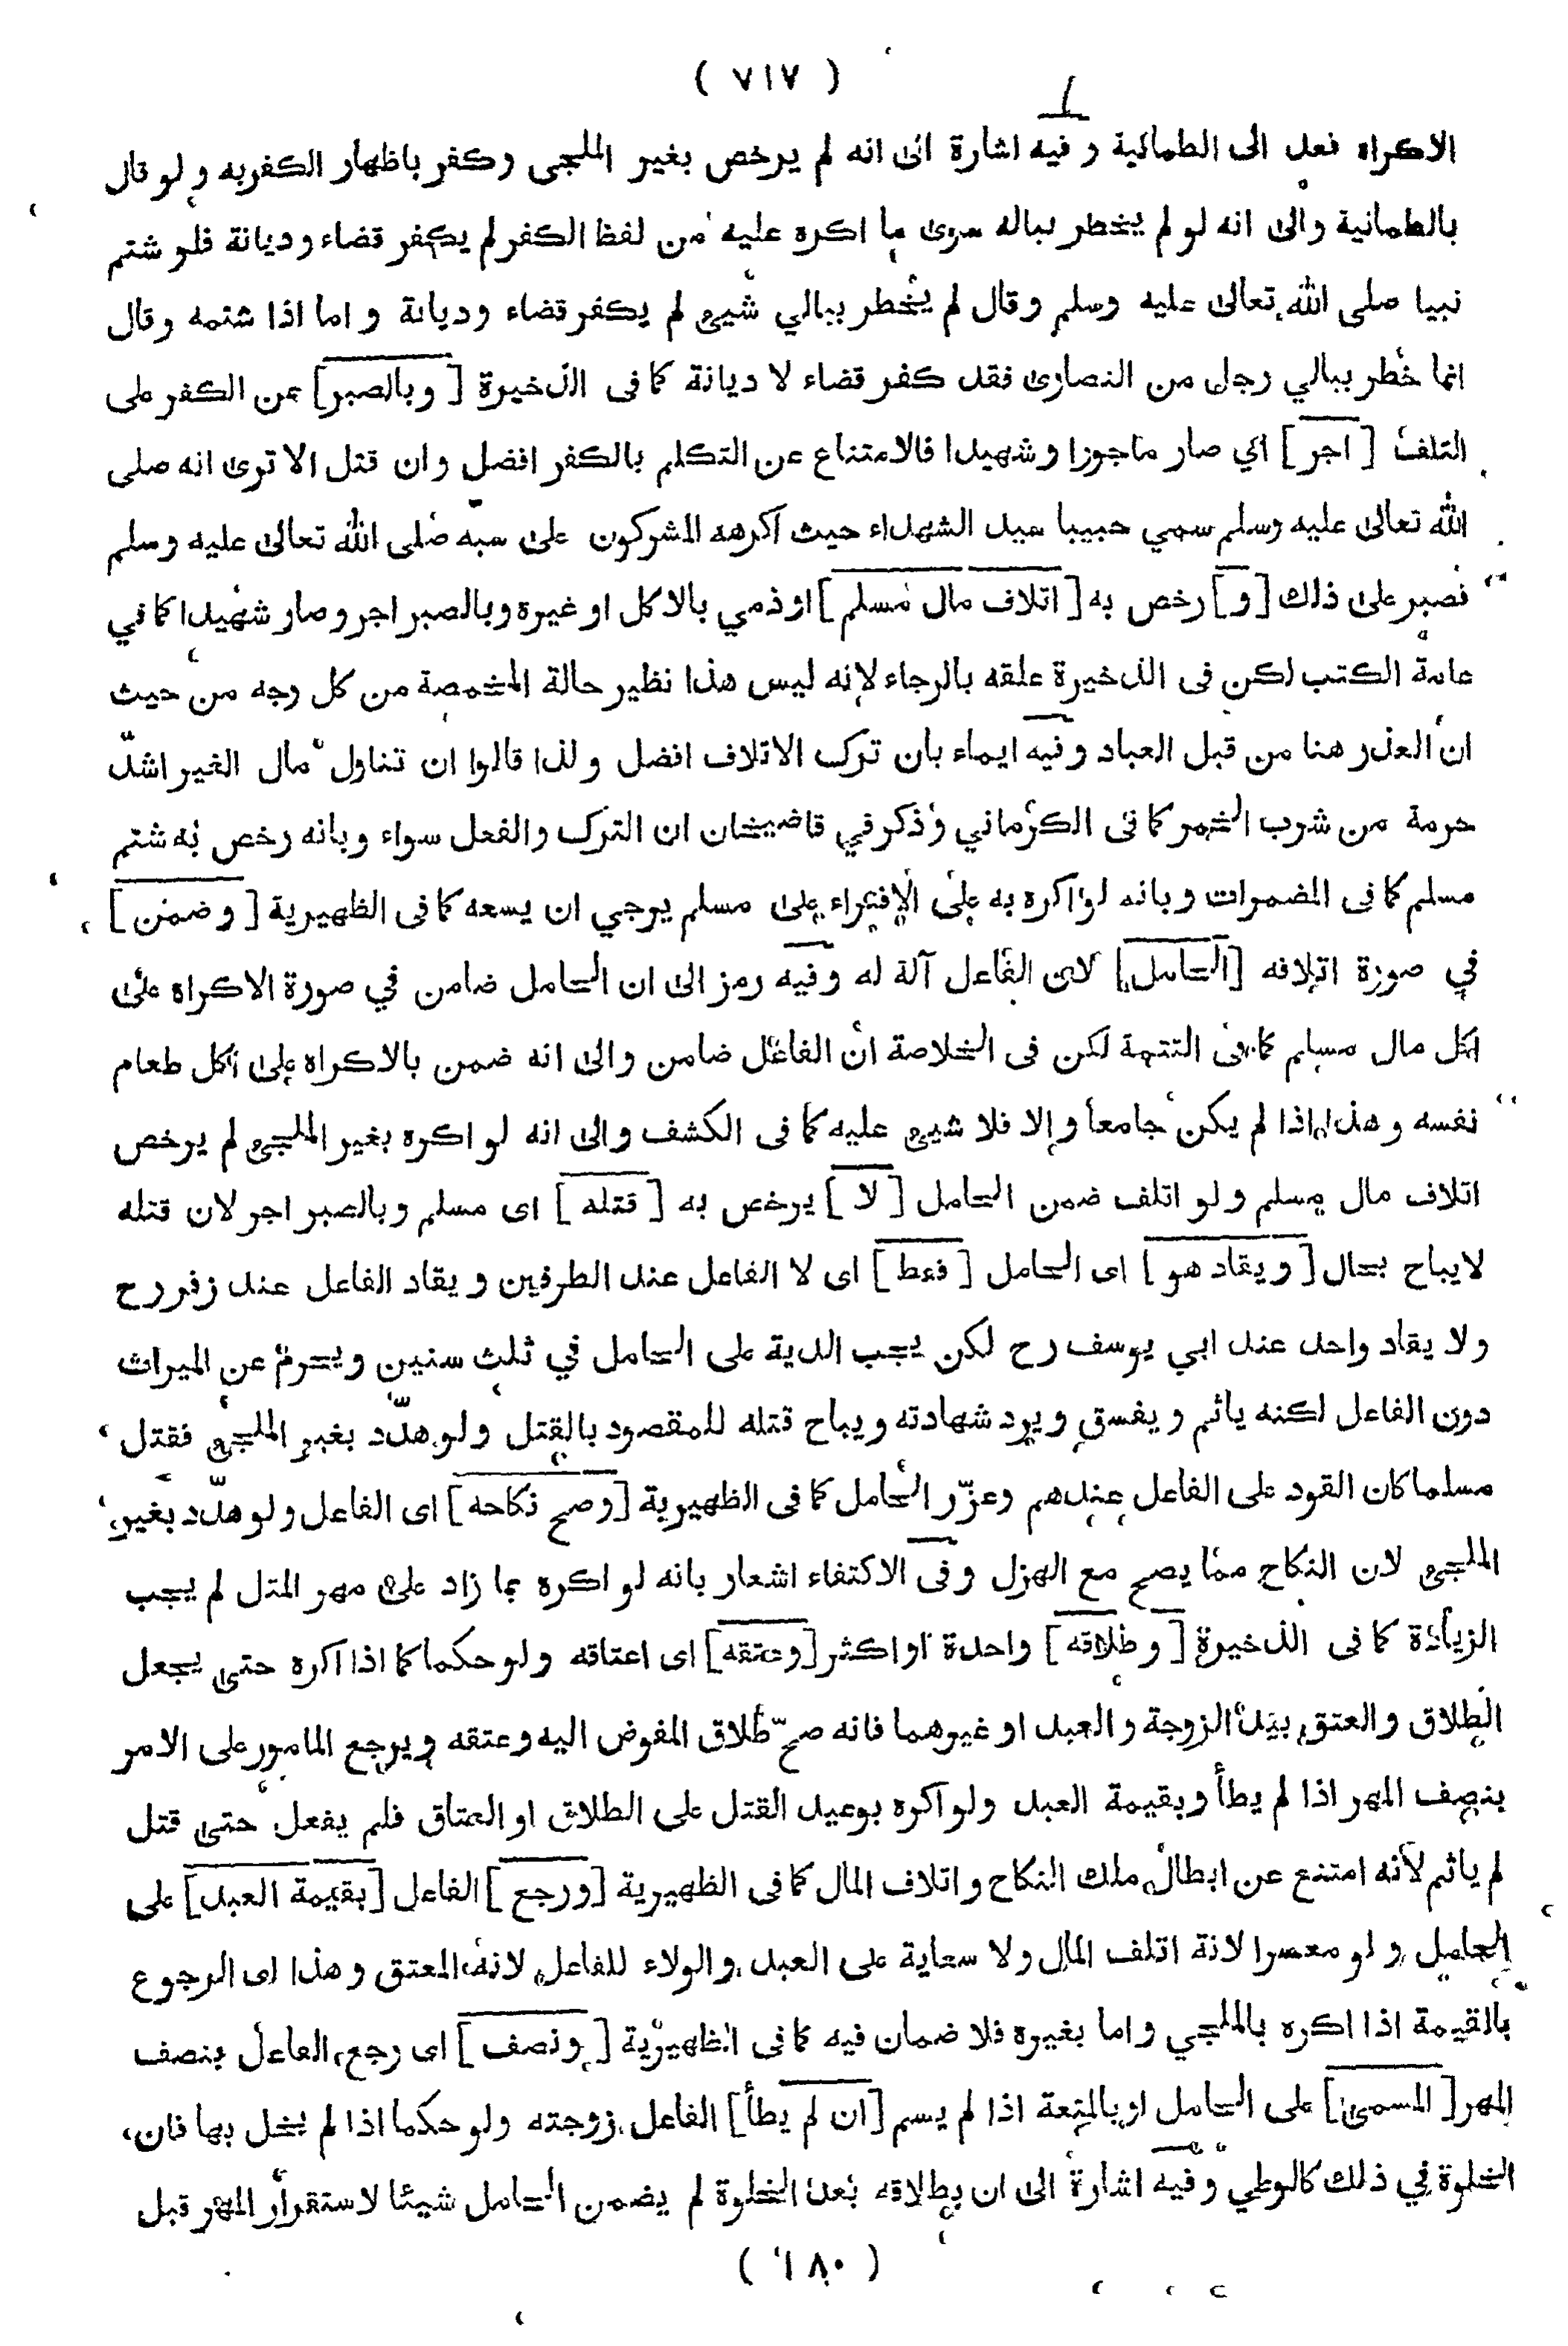 ( ٧١٧ )
الاكراه فعل الى الطمانية وفيه اشارة الى انه لم يرخص بغير الملجى وكفر باظهار الكفر به ولو قال
بالطمانية والى انه لو لم يخطر بباله سوى ما اكره عليه من لفظ الكفر لم يكفر قضاء وديانة فلو شتم
نبيا صلى الله تعالى عليه وسلم وقال لم يخطر ببالي شيئ لم يكفر قضاء وديانة واما اذا شتمه وقال
انما خطر ببالي رجل من النصارى فقد كفر قضاء لا ديانة كما فى الذخيرة [ وبالصبر ] عن الكفر على
التلف [ اجر ] اي صار ماجورا وشهيدا فالامتناع عن التكلم بالكفر افضل وان قتل الا ترى انه صلى
الله تعالى عليه وسلم سمي حبيبا سيد الشهداء حيث اكرهه المشركون على سبه صلى الله تعالى عليه وسلم
فصبر على ذلك [ و ] رخص به [ اتلاف مال مسلم ] او ذمي بالاكل او غيره وبالصبر اجر وصار شهيدا كما في
عامة الكتب لكن فى الذخيرة علقه بالرجاء لانه ليس هذا نظير حالة المخمصة من كل وجه من حيث
ان العذر هنا من قبل العباد وفيه ايماء بان ترك الاتلاف افضل ولذا قالوا ان تناول مال الغير اشدّ
حرمة من شرب الخمر كما فى الكرماني وذكر في قاضيخان ان الترك والفعل سواء وبانه رخص به شتم
مسلم كما فى المضمرات وبانه لو اكره به على الافتراء على مسلم يرجي ان يسعه كما فى الظهيرية [ وضمن ]
في صورة اتلافه [ الحامل ] لان الفاعل آلة له وفيه رمز الى ان الحامل ضامن في صورة الاكراه على
اكل مال مسلم كما فى التتمة لكن فى الخلاصة ان الفاعل ضامن والى انه ضمن بالاكراه على اكل طعام
نفسه وهذا اذا لم يكن جامعا والا فلا شيئ عليه كما فى الكشف والى انه لو اكره بغير الملجئ لم يرخص
اتلاف مال مسلم ولو اتلف ضمن الحامل [ لا ] يرخص به [ قتله ] اى مسلم وبالصبر اجر لان قتله
لا يباح بحال [ ويقاد هو ] اى الحامل [ فقط ] اى لا الفاعل عند الطرفين ويقاد الفاعل عند زفر رح
ولا يقاد واحد عند ابي يوسف رح لكن يجب الدية على الحامل في ثلث سنين ويحرم عن الميراث
دون الفاعل لكنه ياثم ويفسق ويرد شهادته ويباح قتله للمقصود بالقتل ولو هدّد بغير الملجئ فقتل
مسلما كان القود على الفاعل عندهم وعزّر الحامل كما فى الظهيرية [ وصح نكاحه ] اى الفاعل ولو هدّد بغير
الملجئ لان النكاح مما يصح مع الهزل وفى الاكتفاء اشعار بانه لو اكره بما زاد على مهر المثل لم يجب
الزيادة كما فى الذخيرة [ وطلاقه ] واحدة او اكثر [ وعتقه ] اى اعتاقه ولو حكما كما اذا اكره حتى يجعل
الطلاق والعتق بيد الزوجة والعبد او غيرهما فانه صحّ طلاق المفوض اليه وعتقه ويرجع المامور على الامر
بنصف المهر اذا لم يطأ وبقيمة العبد ولو اكره بوعيد القتل على الطلاق او العتاق فلم يفعل حتى قتل
لم ياثم لانه امتنع عن ابطال ملك النكاح واتلاف المال كما فى الظهيرية [ ورجع ] الفاعل [ بقيمة العبد ] على
الحامل ولو معسرا لانة اتلف المال ولا سعاية على العبد والولاء للفاعل لانه المعتق وهذا اى الرجوع
بالقيمة اذا اكره بالملجي واما بغيره فلا ضمان فيه كما فى الظهيرية [ ونصف ] اى رجع الفاعل بنصف
المهر [ المسمى ] على الحامل او بالمتعة اذا لم يسم [ ان لم يطأ ] الفاعل زوجته ولو حكما اذا لم يخل بها فان
الخلوة في ذلك كالوطي وفيه اشارة الى ان بطلاقه بعد الخلوة لم يضمن الحامل شيئا لاستقرار المهر قبل
( ١٨٠ )